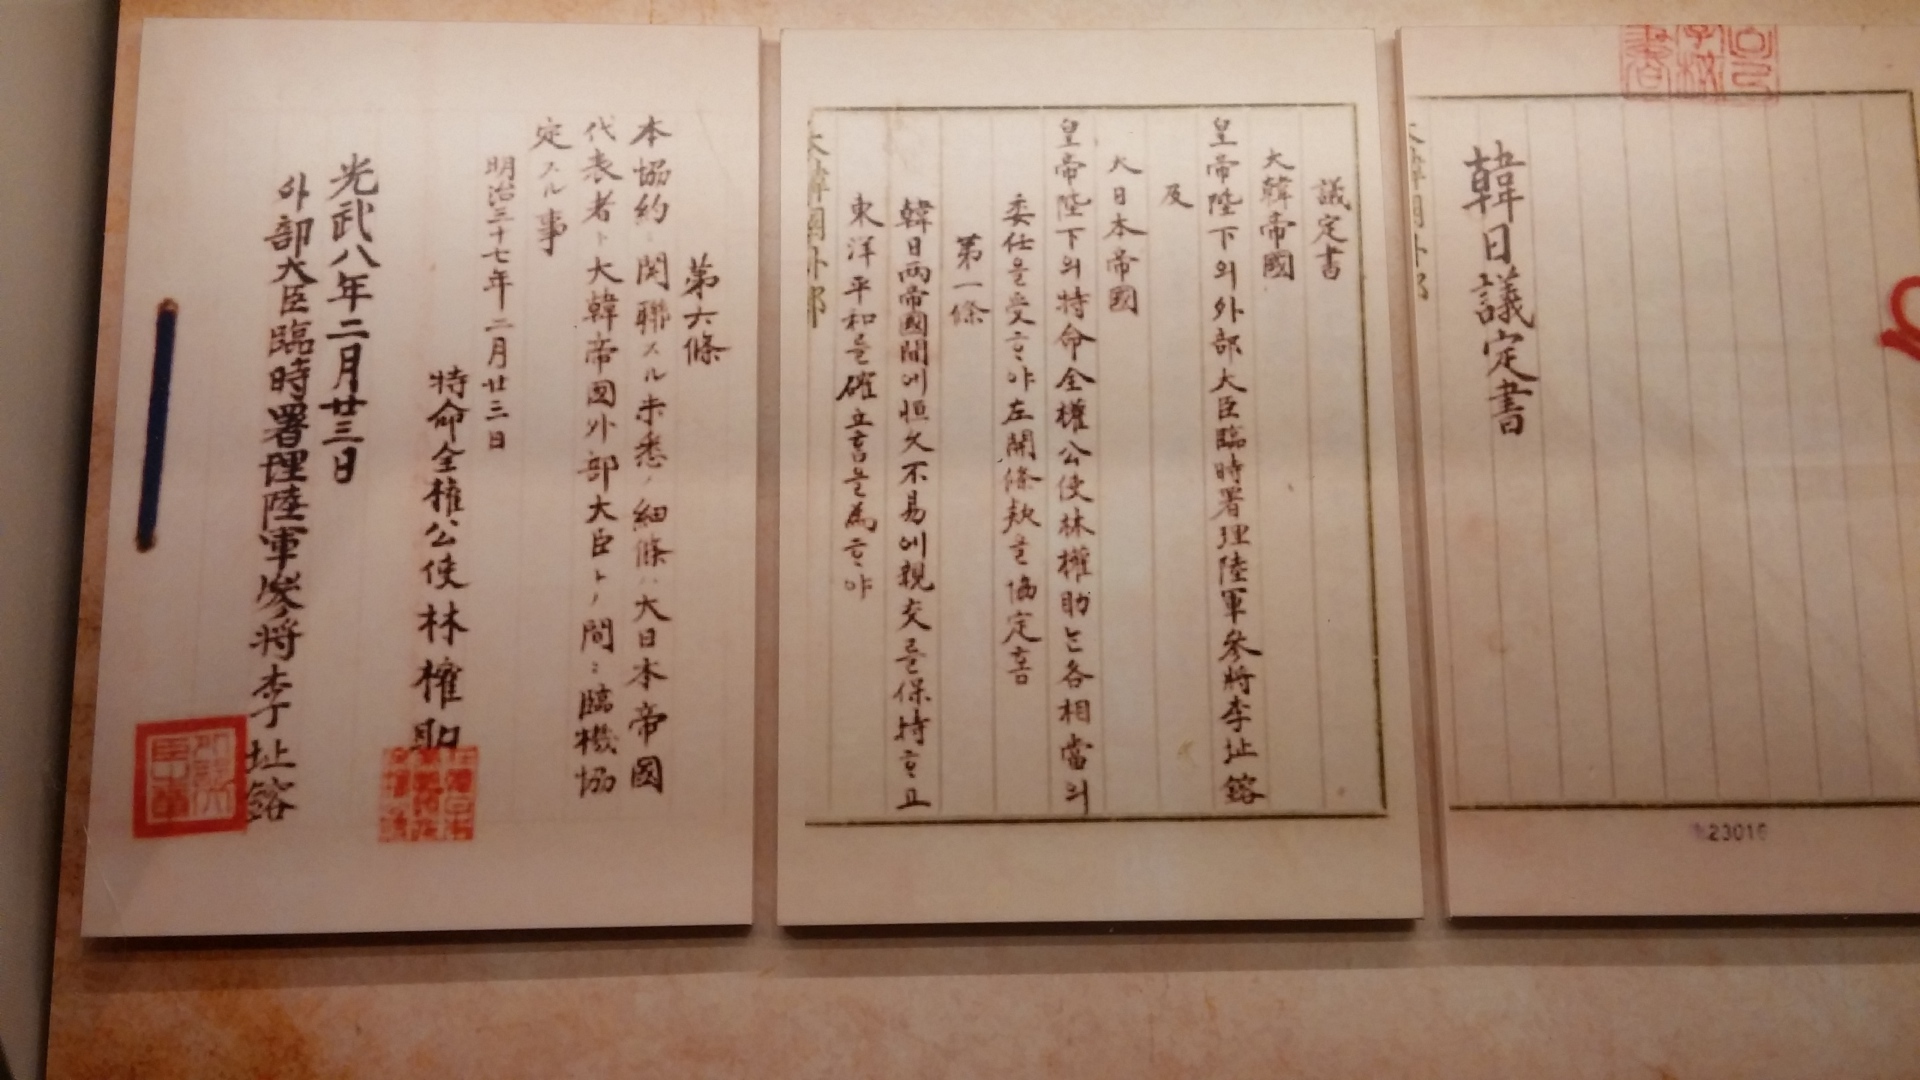 韓日議定書
23016
議定書
大韓帝國
皇帝陛下의外部大臣臨時署理陸軍參將李址鎔
及
大日本帝國
皇帝陛下의特命全權公使林權助는各相當의
委任을受ᄒᆞ야左開條款을協定홈
第一條
韓日兩帝國間에恒久不易에親交를保持ᄒᆞ고
東洋平和를確立홈을爲ᄒᆞ야
大韓國外部
第六條
本協約ニ関聯スル未悉ノ細條ハ大日本帝國
代表者ト大韓帝國外部大臣トノ間ニ臨機協
定スル事
明治三十七年二月廿三日
特命全權公使林權助
光武八年二月廿三日
外部大臣臨時署理陸軍參將李址鎔